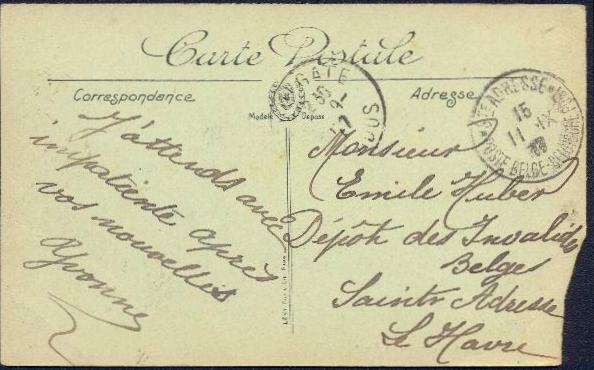 Carte Postale
Correspondance
Adresse
Modèle Déposé
J'attends avec
impatiente après
vos nouvelles
Yvonne
Monsieur
Emile Huber
Dépôt des Invalides
Belges
Sainte Adresse
Le Havre
GATE
30
9-
17
STE ADRESSE
15
11 IX
POSTE BELGE-